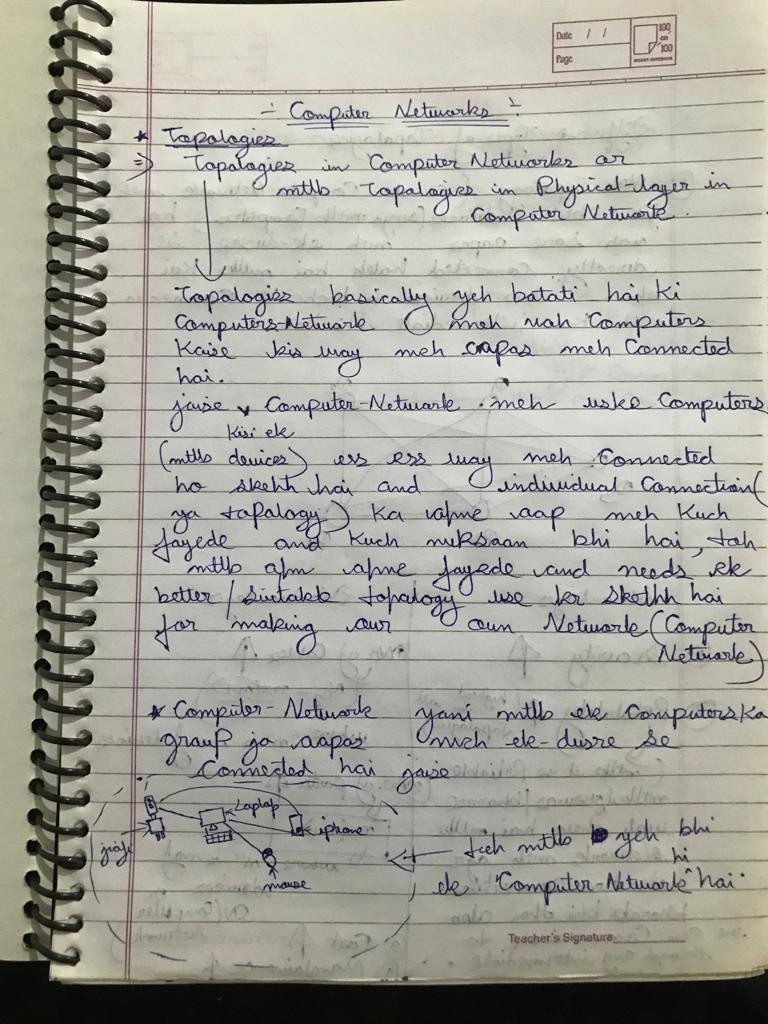 Date / /
Page
100 on 100
- Computer Networks -
* Topalogies
=> Topalogies in Computer Networks or
mtlb Topalogies in Physical-layer in
Computer Network.
Topalogies basically yeh batati hai ki
Computers-Network meh vah Computers
Kaise kis way meh aapas meh Connected
hai.
jaise Computer-Network meh uske Computers
Kisi ek
(mtlb devices) ess ess way meh Connected
ho skehh hai and individual Connection(
ya topalogy) Ka apne aap meh Kuch
fayede and Kuch nuksaan bhi hai, toh
mtlb apn apne fayede and needs ek
better / siutable topalogy use kr skehh hai
for making our oun Network (Computer
Network)
* Computer-Network yani mtlb ek Computers Ka
grauf jo aapas meh ek-dusre se
Connected hai jaise
Laptap
iphone
mause
toh mtlb yeh bhi
hi
ek "Computer-Network" hai.
Teacher's Signature